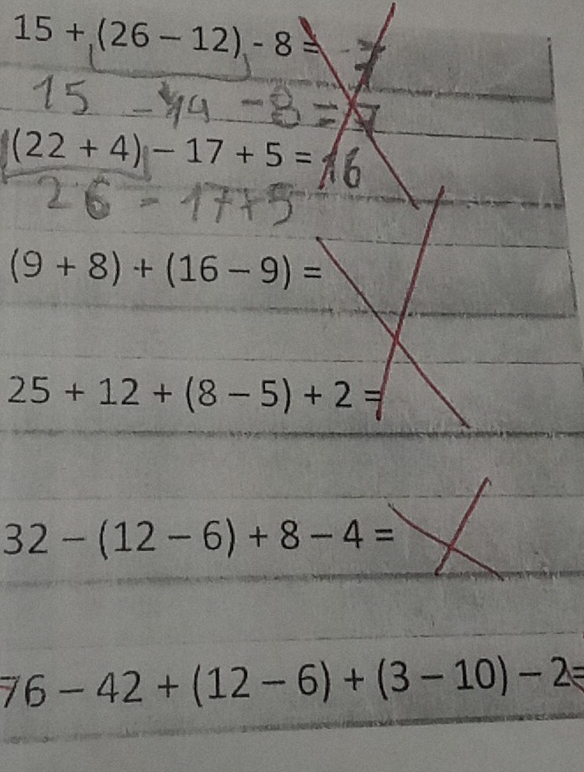 15 + (26 – 12) - 8 = -7
15 - 14 - 8 = 7
(22 + 4) – 17 + 5 = 16
26 - 17 + 5
(9 + 8) + (16 – 9) =
25 + 12 + (8 – 5) + 2 =
32 – (12 – 6) + 8 – 4 =
76 – 42 + (12 – 6) + (3 – 10) – 2=